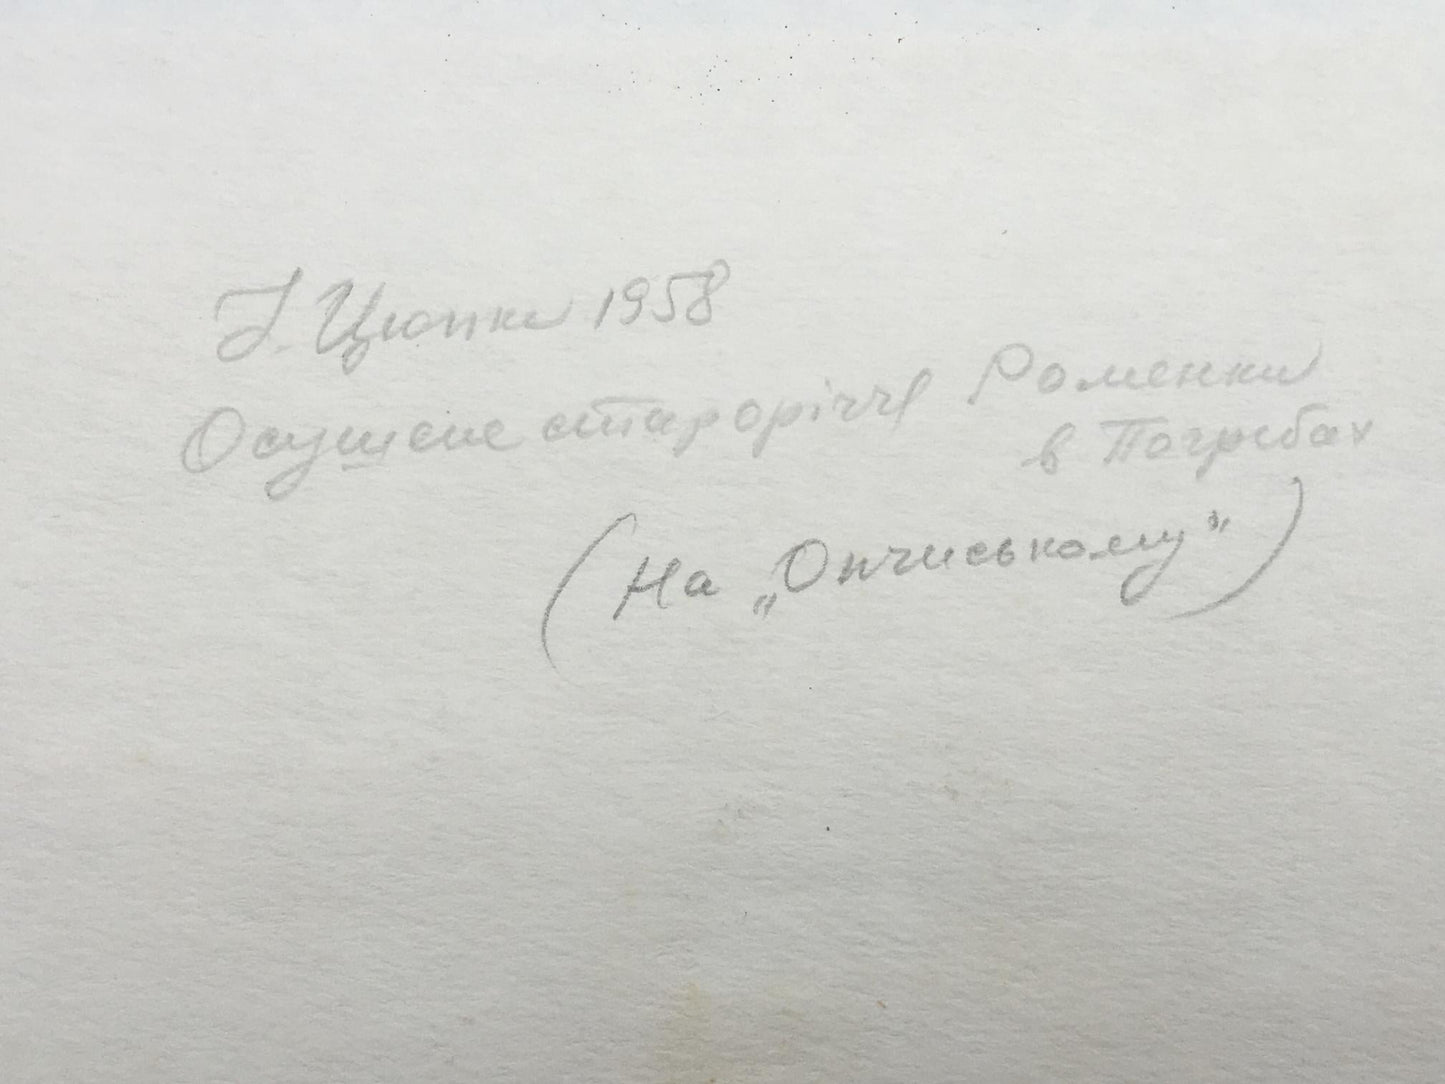 І. Цюпка 1958
Осушене староріччя Роменки
в Погребах
(На „Опчиському")